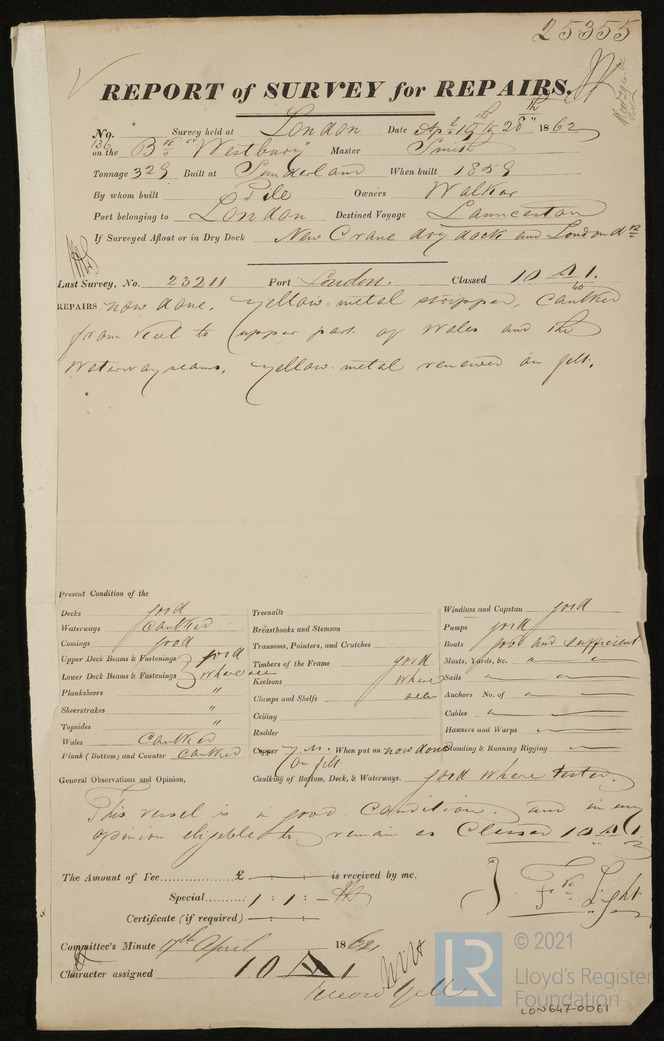 25355
REPORT of SURVEY for REPAIRS.
No. 136 Survey held at London Date Apl 15th to 28th 1862
on the Bk "Westbury" Master Smith
Tonnage 329 Built at Sunderland When built 1859
By whom built Pile Owners Walker
Port belonging to London Destined Voyage Launceston
If Surveyed Afloat or in Dry Dock New Crane dry dock and London
Last Survey, No. 23211 Port London. Classed 10 A 1.
60
REPAIRS now done. Yellow metal stripped, Caulked
from Keel to upper part of Wales and the
Waterway seams, Yellow metal renewed on felt.
Present Condition of the
Decks good
Waterways Caulked
Comings good
Upper Deck Beams & Fastenings good
Lower Deck Beams & Fastenings where see
Planksheers "
Sheerstrakes "
Topsides "
Wales Caulked
Plank (Bottom) and Counter Caulked
Treenails
Breasthooks and Stemson
Transoms, Pointers, and Crutches
Timbers of the Frame good
Keelsons where
Clamps and Shelfs seen
Ceiling
Rudder
Copper Y.M. When put on now done
on felt
Caulking of Bottom, Deck, & Waterways. good where tested.
Windlass and Capstan good
Pumps good
Boats good and sufficient
Masts, Yards, &c. " "
Sails " "
Anchors No. of " "
Cables " "
Hawsers and Warps " "
Standing & Running Rigging "
General Observations and Opinion,
This vessel is in good Condition, and in my
opinion eligible to remain as Classed 10 A 1.
The Amount of Fee £ is received by me,
Special 1 : 1 : -
Certificate (if required)
J. Fk Light
Committee's Minute 17th April 186
Character assigned 10 A 1
© 2021
LR Lloyd's Register
Foundation
LON647-0061